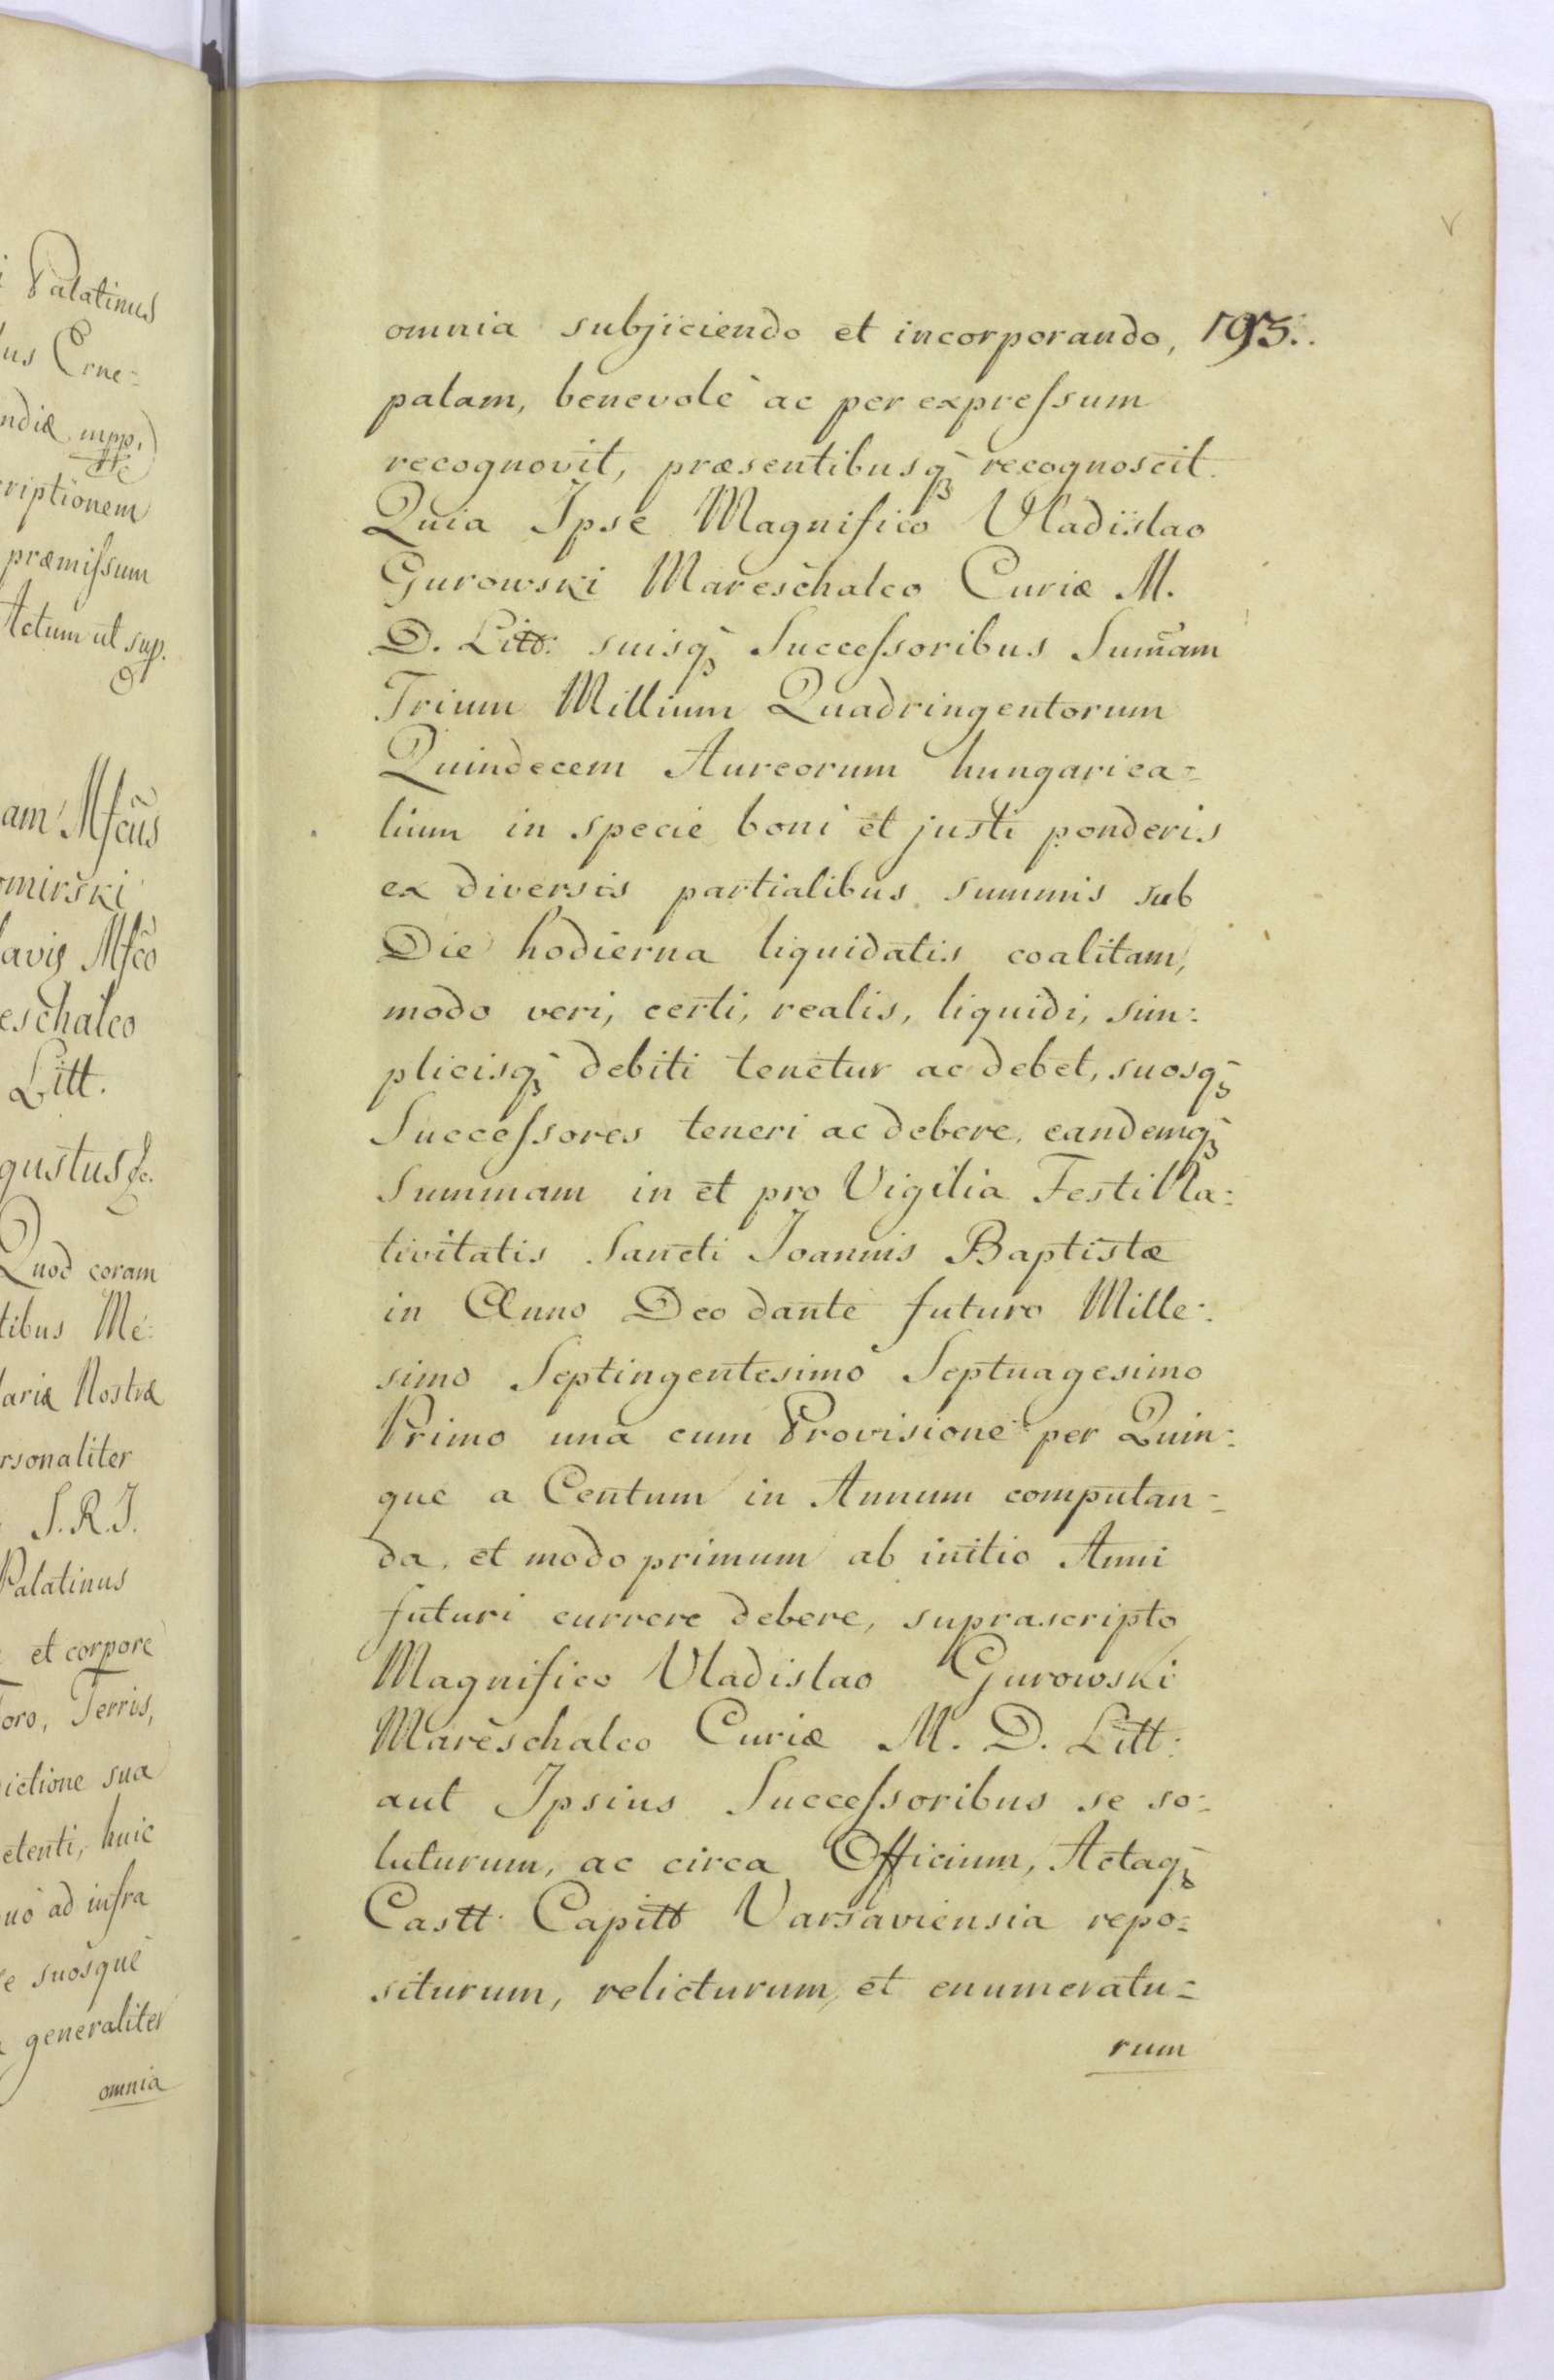 i Palatinus
us Crne=
ndiæ mpp.
riptionem
præmiſsum
Actum ut sup.
am Mſcus
omirski
lavis Mſco
eschalco
Litt.
gustus &c.
Quod coram
tibus Me=
lariæ Nostræ
rsonaliter
S.R.I.
Palatinus
et corpore
oro, Terris,
ictione sua
etenti, huic
uo ad infra
e suosque
generaliter
omnia
omnia subjiciendo et incorporando, 193.
palam, benevolè ac per expreſsum
recognovit, præsentibusq̃ recognoscit.
Quia Ipse Magnifico Vladislao
Gurowski Mareschalco Curiæ M.
D. Litt: suisq̃ Succeſsoribus Sum̃am
Trium Millium Quadringentorum
Quindecem Aureorum hungarica=
lium in specie boni et justi ponderis
ex diversis partialibus summis sub
Die hodierna liquidatis coalitam,
modo veri, certi, realis, liquidi, sim=
plicisq̃ debiti tenetur ac debet, suosq̃
Succeſsores teneri ac debere, eandemq̃
Summam in et pro Vigilia Festi Na=
tivitatis Sancti Joannis Baptistæ
in Anno Deo dante futuro Mille=
simo Septingentesimo Septuagesimo
Primo unà cum Provisione per Quin=
que a Centum in Annum computan=
da, et modo primum ab initio Anni
futuri currere debere, suprascripto
Magnifico Vladislao Gurowski
Mareschalco Curiæ M. D. Litt:
aut Ipsius Succeſsoribus se so=
luturum, ac circa Officium, Actaq̃
Castt. Capitt Varsaviensia repo=
siturum, relicturum, et enumeratu=
rum